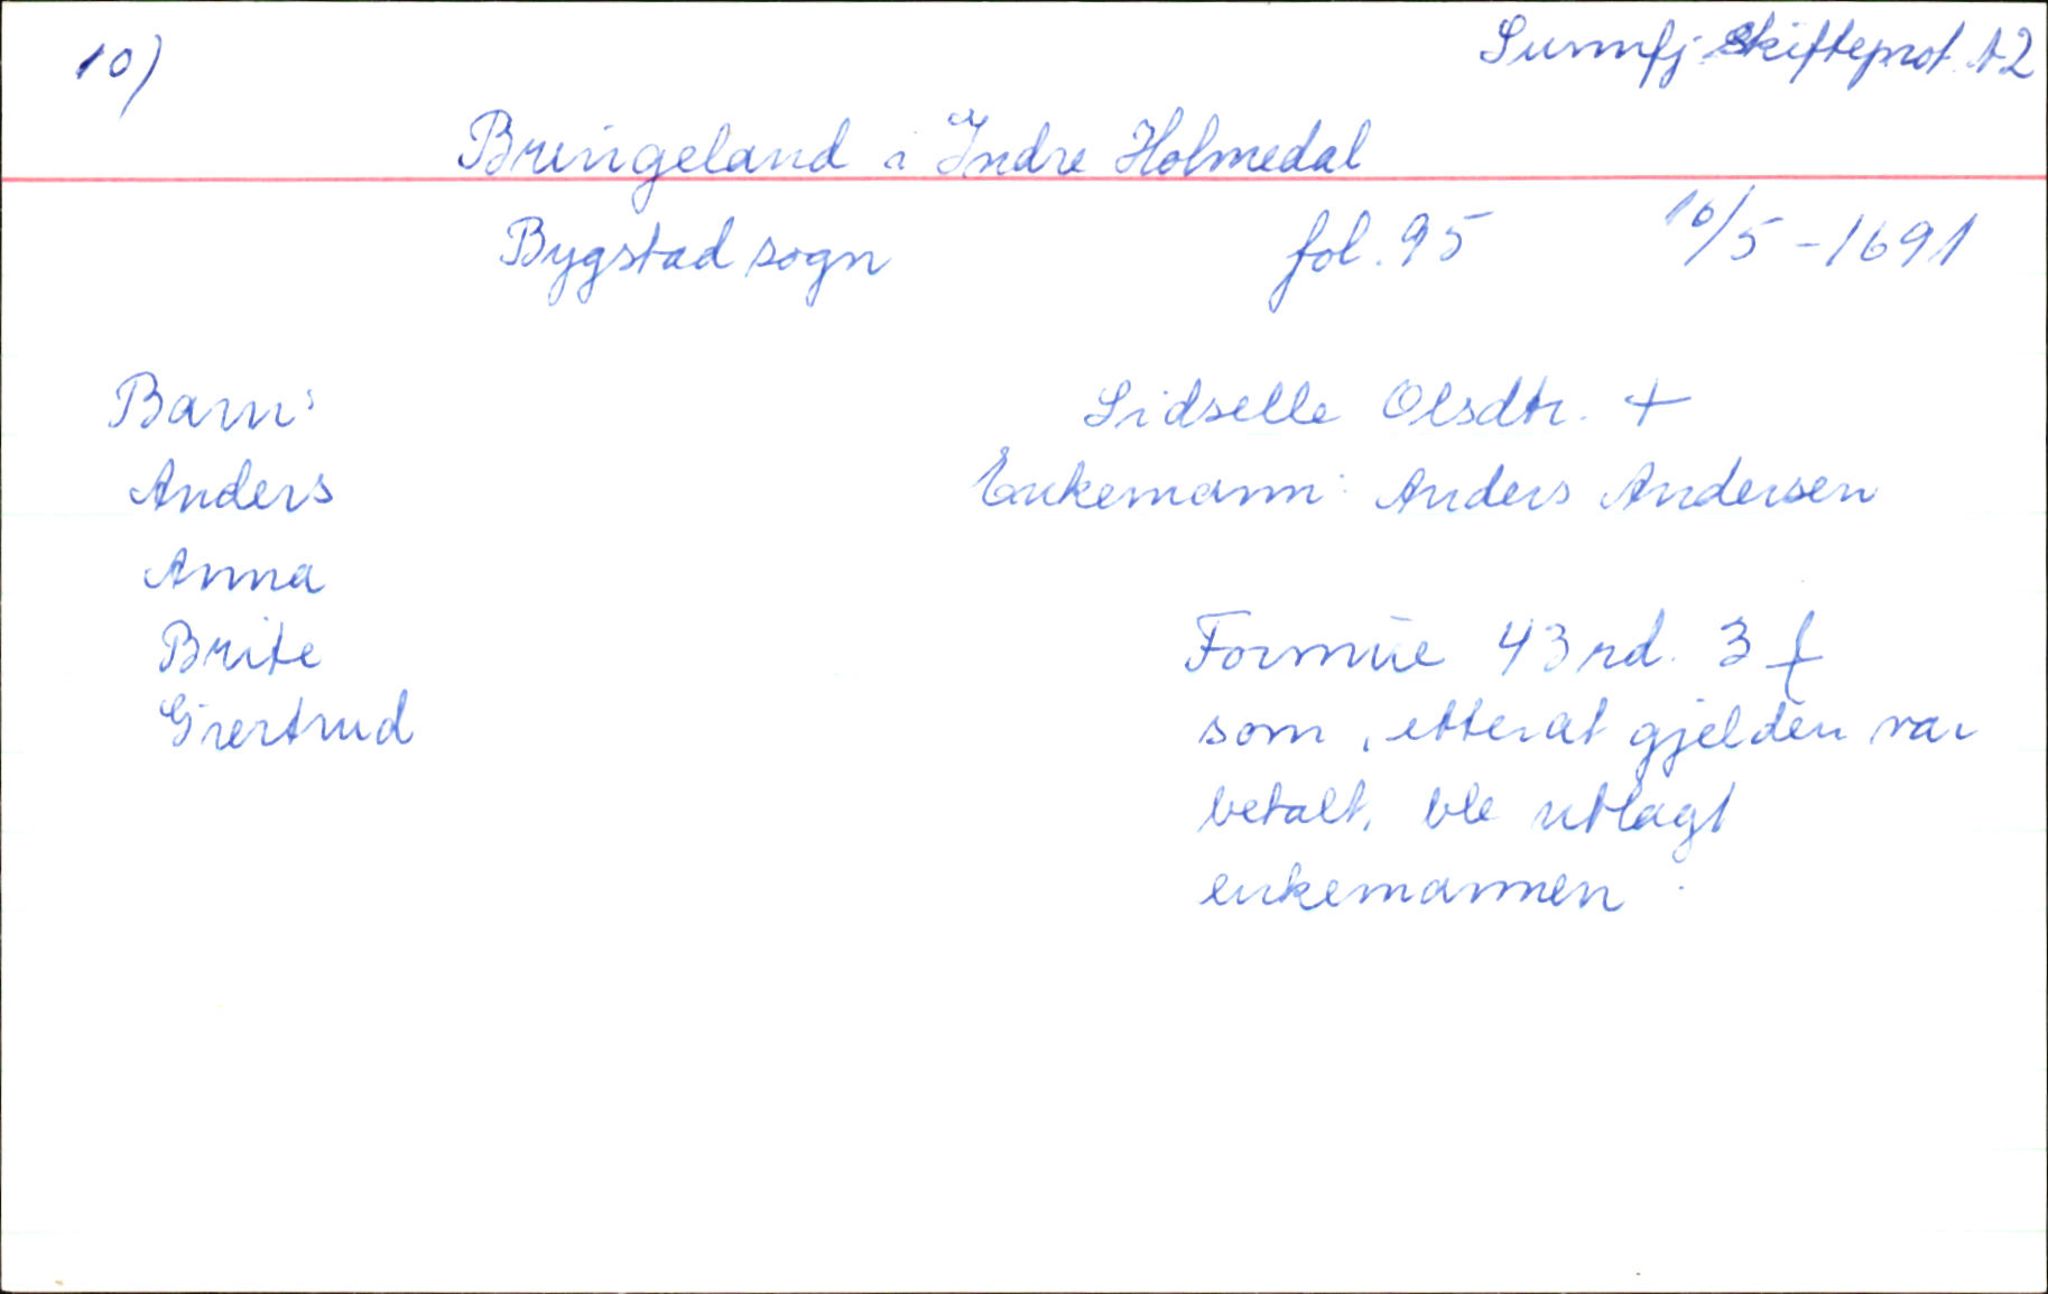 10)
Sunnfj. Skifteprot. A2
Bringeland i Indre Holmedal
Bygstad sogn fol. 95 16/5 - 1691
Barn: Sidselle Olsdtr. +
Anders Enkemann: Anders Andersen
Anna
Brite Formue 43 rd. 3
Gjertrud som, etter at gjelden var
betalt, ble utlagt
enkemannen.